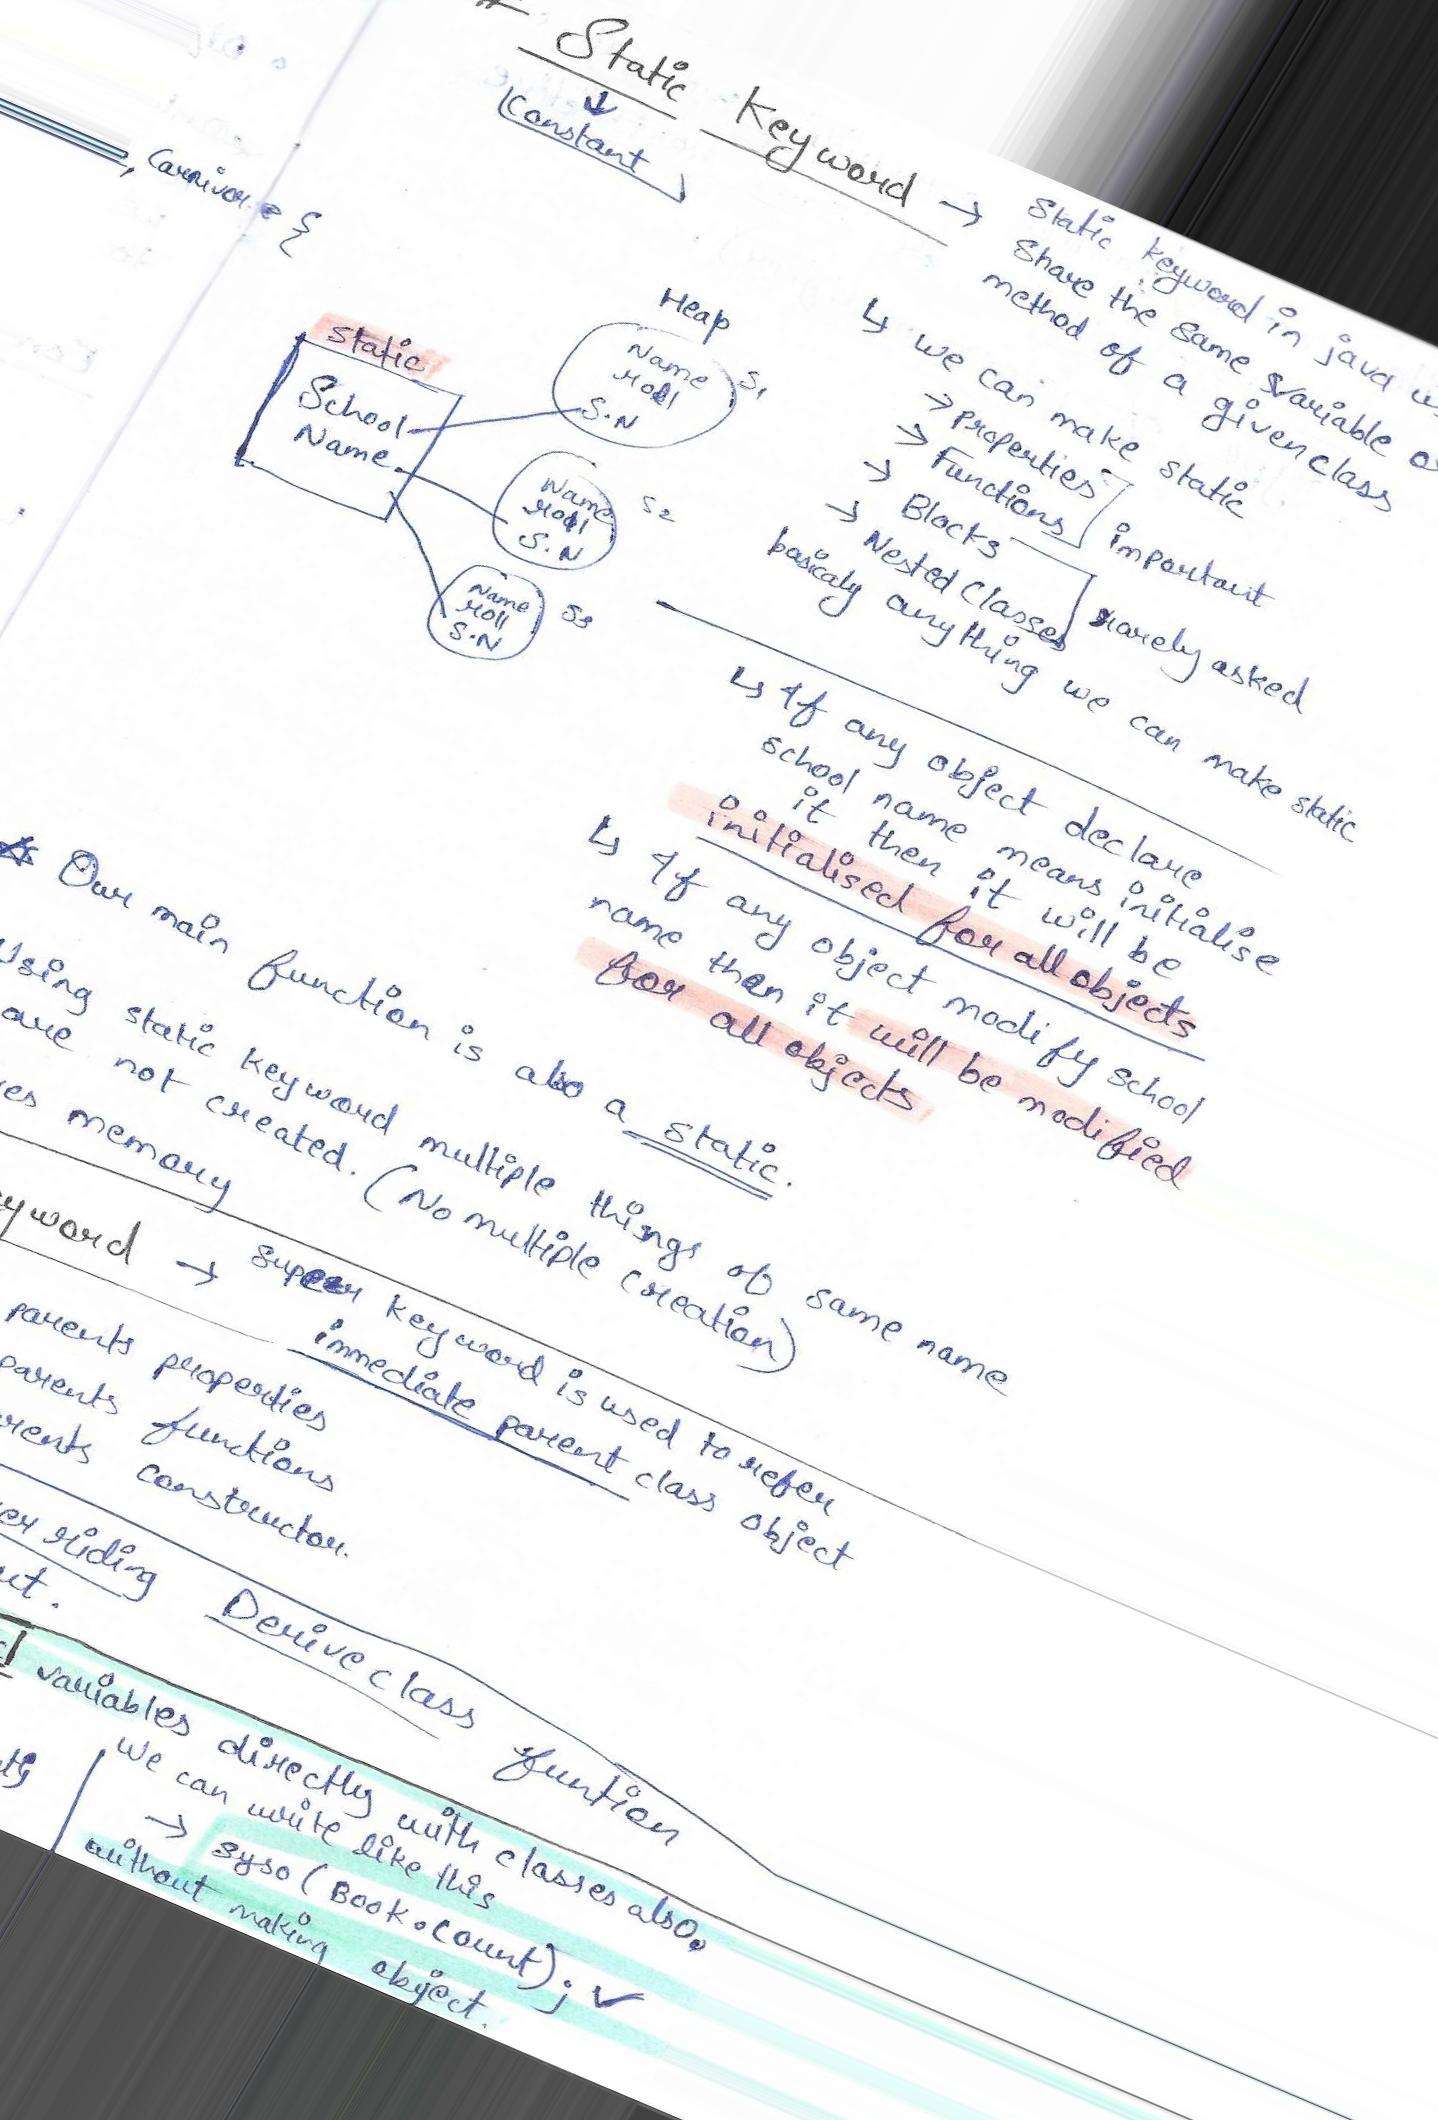 # Static Keyword → Static keyword in java
Constant
Share the same variable or
method of a given class
, Carnivore {
↳ we can make static
→ Properties
→ Functions
important
→ Blocks
→ Nested Classes
rarely asked
basicaly anything we can make static
Heap
static
School
Name
Name
Roll
S.N
S1
Name
Roll
S.N
S2
Name
Roll
S.N
S3
↳ If any object declare
school name means initialise
it then it will be
initialised for all objects
↳ If any object modify school
name then it will be modified
for all objects
☆ Our main function is also a static.
Using static keyword multiple things of same name
are not created. (No multiple creation)
memory
→ Super keyword is used to refer
immediate parent class object
parents properties
parents functions
constructor.
riding Derive class funtion
variables directly with classes also.
We can write like this
→ syso (Book.count); ✓
without making object.